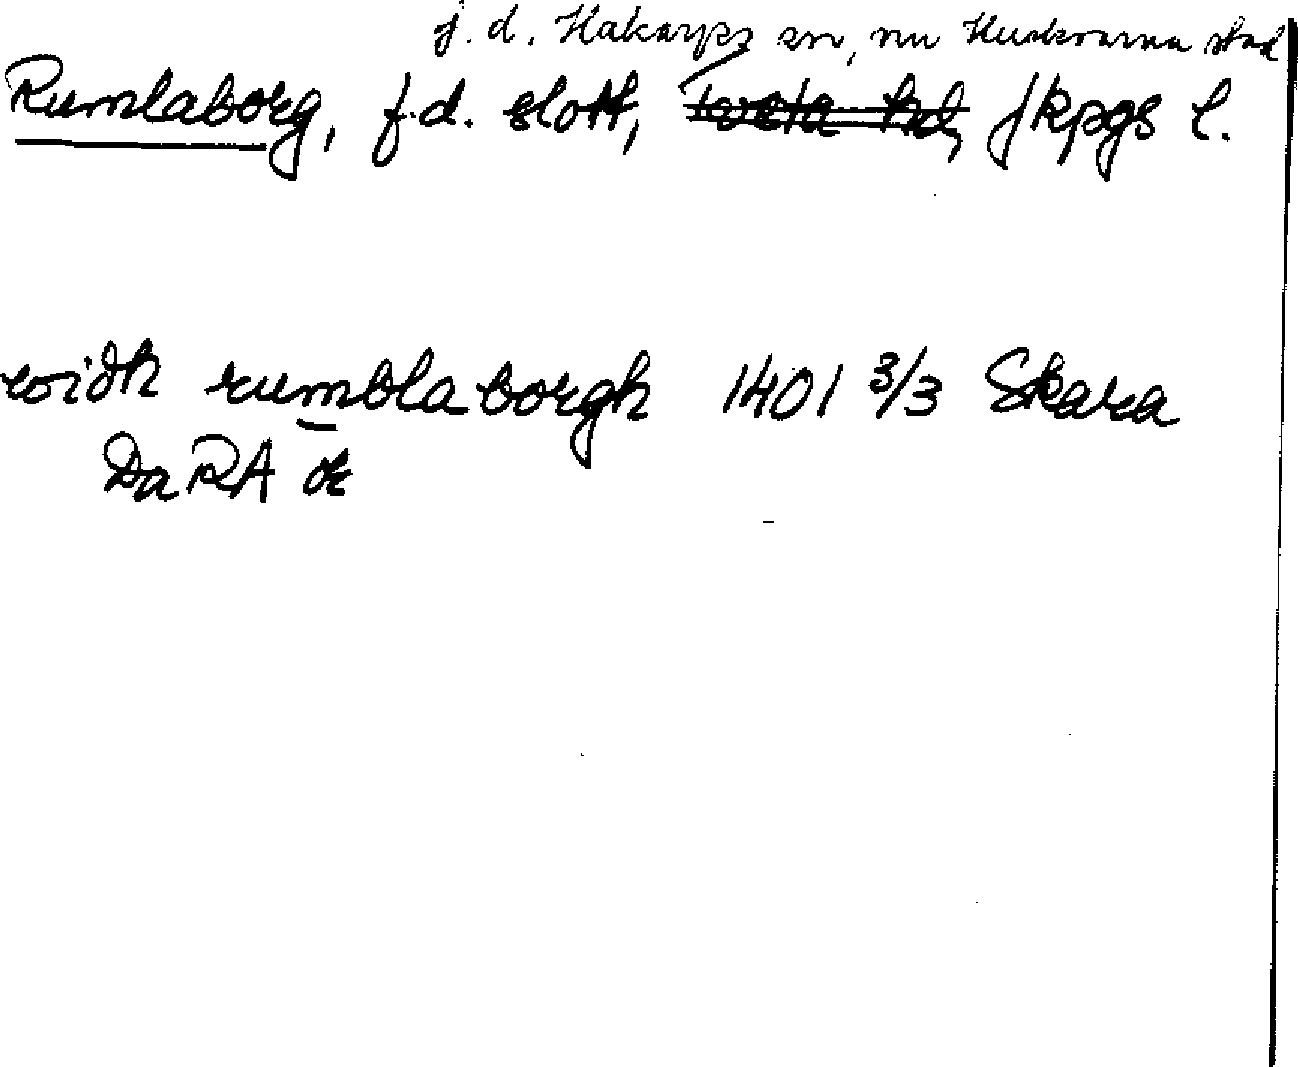 f. d. Hakarps sn, nu Huskvarna stad
Rumlaborg, f.d. slott, Tveta hd, Jkpgs l.
widh rumbla borgh 1401 3/3 Skara
DaRA or